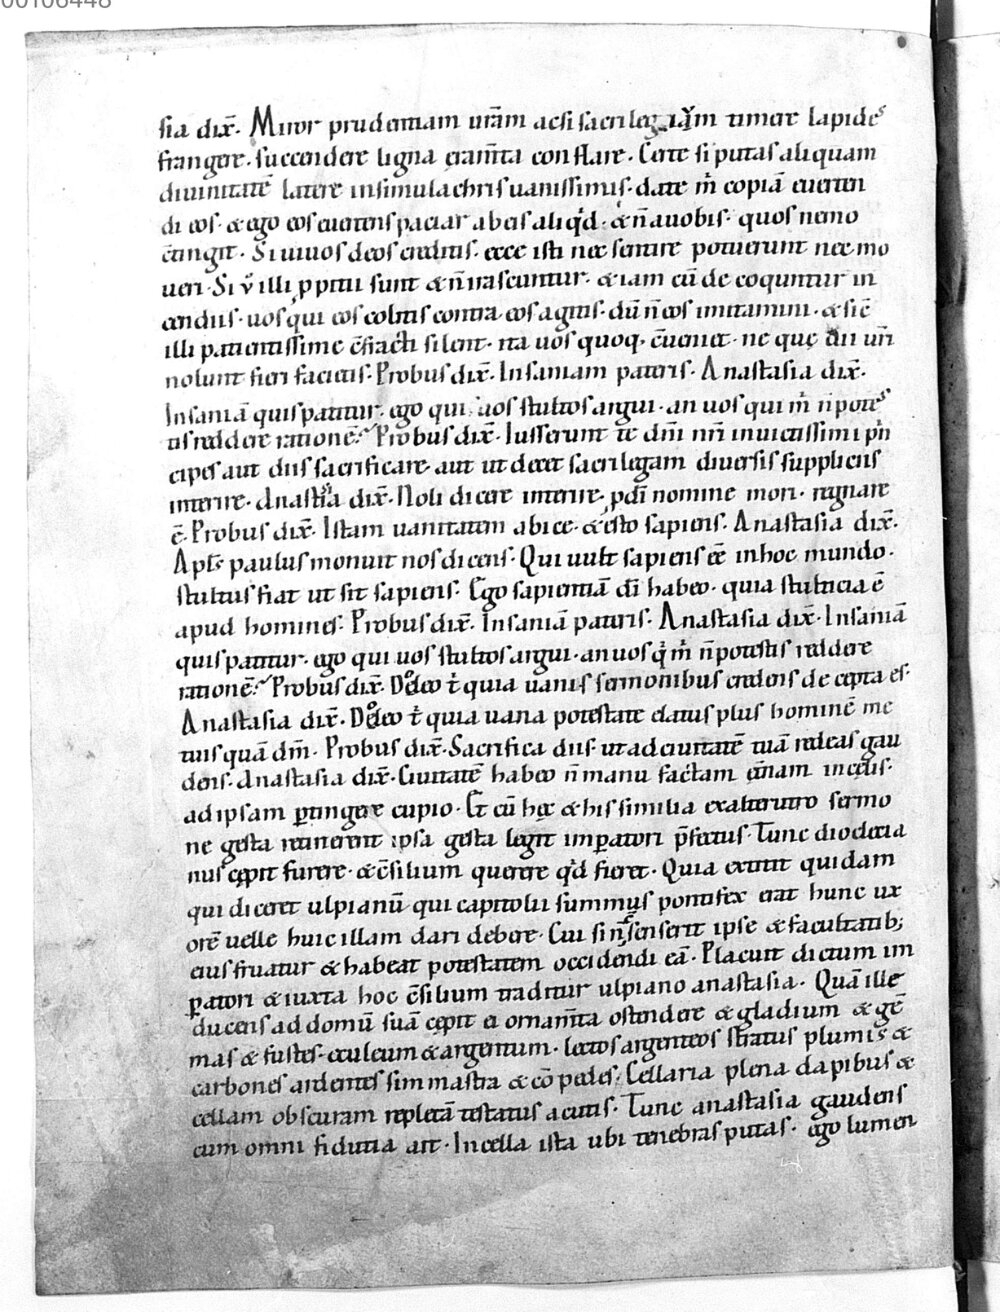 00106448
sia dix̄. Miror prudentiam ur̄am acsi sacrileg iũm timere lapides
frangere. succendere ligna eram̄ta conflare. Certe si putas aliquam
diuinitatē latere insimulachris uanissimis. date m̄ copiā euerten
di eos. & ego eos euertens paciar abeis aliq̄d. & n̄ auobis. quos nemo
c̄tingit. Si uiuos deos creditis. ecce isti nec sentire potuerunt nec mo
ueri. Si v̊ illi p̱pitii sunt & n̄ irascuntur. & iam cū de coquntur in
cendiis. uos qui eos colitis contra eos agitis. dū n̄ eos imitamini. & sic̄
illi patientissime c̄fracti silent. ita uos quoq. c̄ueniet. ne quę dii ur̄i
nolunt fieri faciatis. Probus dix̄. Insaniam pateris. Anastasia dix̄.
Insaniā quis patitur. ego qui uos stultos argui. an uos qui m̄ n̄ potes
tis reddere rationē. Probus dix̄. Iusserunt te dn̄i nr̄i inuictissimi p̄n
cipes aut diis sacrificare. aut ut decet sacrilegam diuersis suppliciis
interire. Anastasia dix̄. Noli dicere interire. p̱ dī nomine mori. regnare
ē. Probus dix̄. Istam uanitatem abice. & esto sapiens. Anastasia dix̄.
Apl̄s paulus monuit nos dicens. Qui uult sapiens eē inhoc mundo.
stultus fiat ut sit sapiens. Ego sapientiā dī habeo. quia stulticia ē
apud homines. Probus dix̄. Insaniā pateris. Anastasia dix̄. Insaniā
quis patitur. ego qui uos stultos argui. an uos q̄ m̄ n̄ potestis reddere
rationē. Probus dix̄. Doleo t̄ quia uanis sermonibus credens decepta es.
Anastasia dix̄. Doleo t̄ quia uana potestate elatus plus hominē me
tuis quā dm̄. Probus dix̄. Sacrifica diis. ut ad ciuitatē tuā redeas gau
dens. Anastasia dix̄. Ciuitatē habeo n̄ manu factam et̄nam incęlis.
ad ipsam ꝑtingere cupio. Et cū hęc & his similia exalterutro sermo
ne gesta retinerent ipsa gesta legit imꝑatori p̄fectus. Tunc diodetia
nus cępit furere. & c̄silium querere q̄d fieret. Quia extitit quidam
qui diceret ulpianū qui capitolii summus pontifex erat hunc ux
orē uelle huic illam dari debere. Cui si n̄ senserit ipse & facultatib;
eius fruatur & habeat potestatem occidendi eā. Placuit dictum im
ꝑatori & iuxta hoc c̄silium traditur ulpiano anastasia. Quā ille
ducens ad domū suā cępit ei ornam̄ta ostendere & gladium & gē
mas & fustes. eculeum & argentum. lectos argenteos stratus plumis &
carbones ardentes simmastra & cōpedes. Cellaria plena dapibus &
cellam obscuram repletā testatus acutis. Tunc anastasia gaudens
cum omni fidutia ait. Incella ista ubi tenebras putas. ego lumen